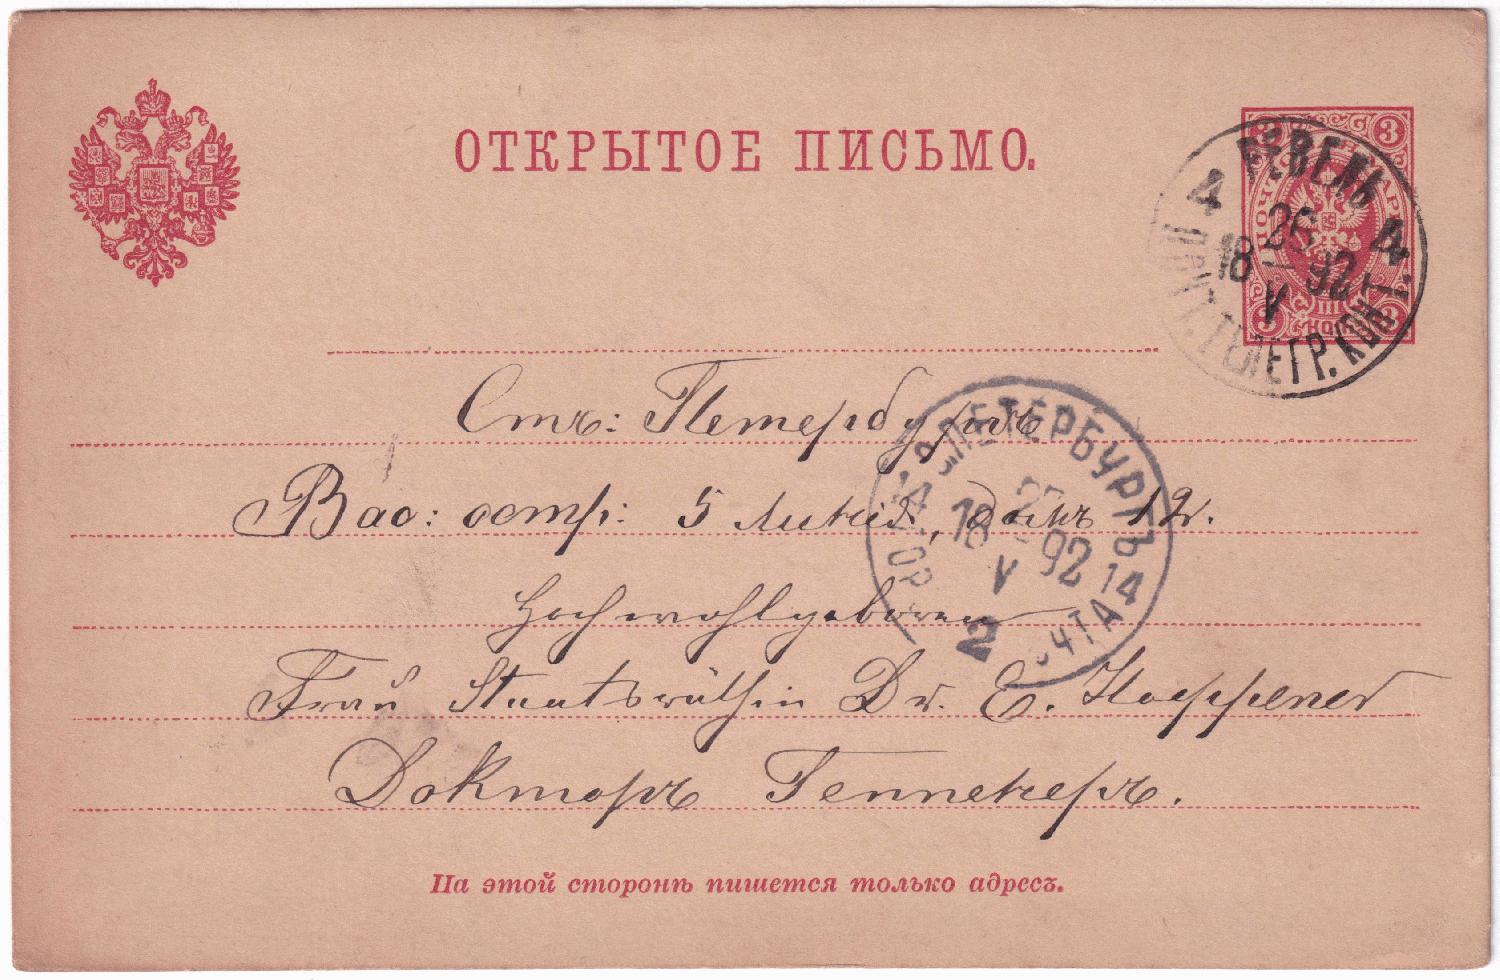 ОТКРЫТОЕ ПИСЬМО.
3 3
РЕВЕЛЬ
4 4
26
18 92
V
ПОЧТ. ТЕЛЕГР. КОНТ.
Стъ: Петербургъ
С.ПЕТЕРБУРГЪ
Вас: остр: 5 линія, домъ 12.
14 14
27
18 92
V
2
Hochwohlgeboren
Frau Staatsräthin Dr. E. Hoeppener
Докторъ Геппенеръ.
На этой сторонѣ пишется только адресъ.